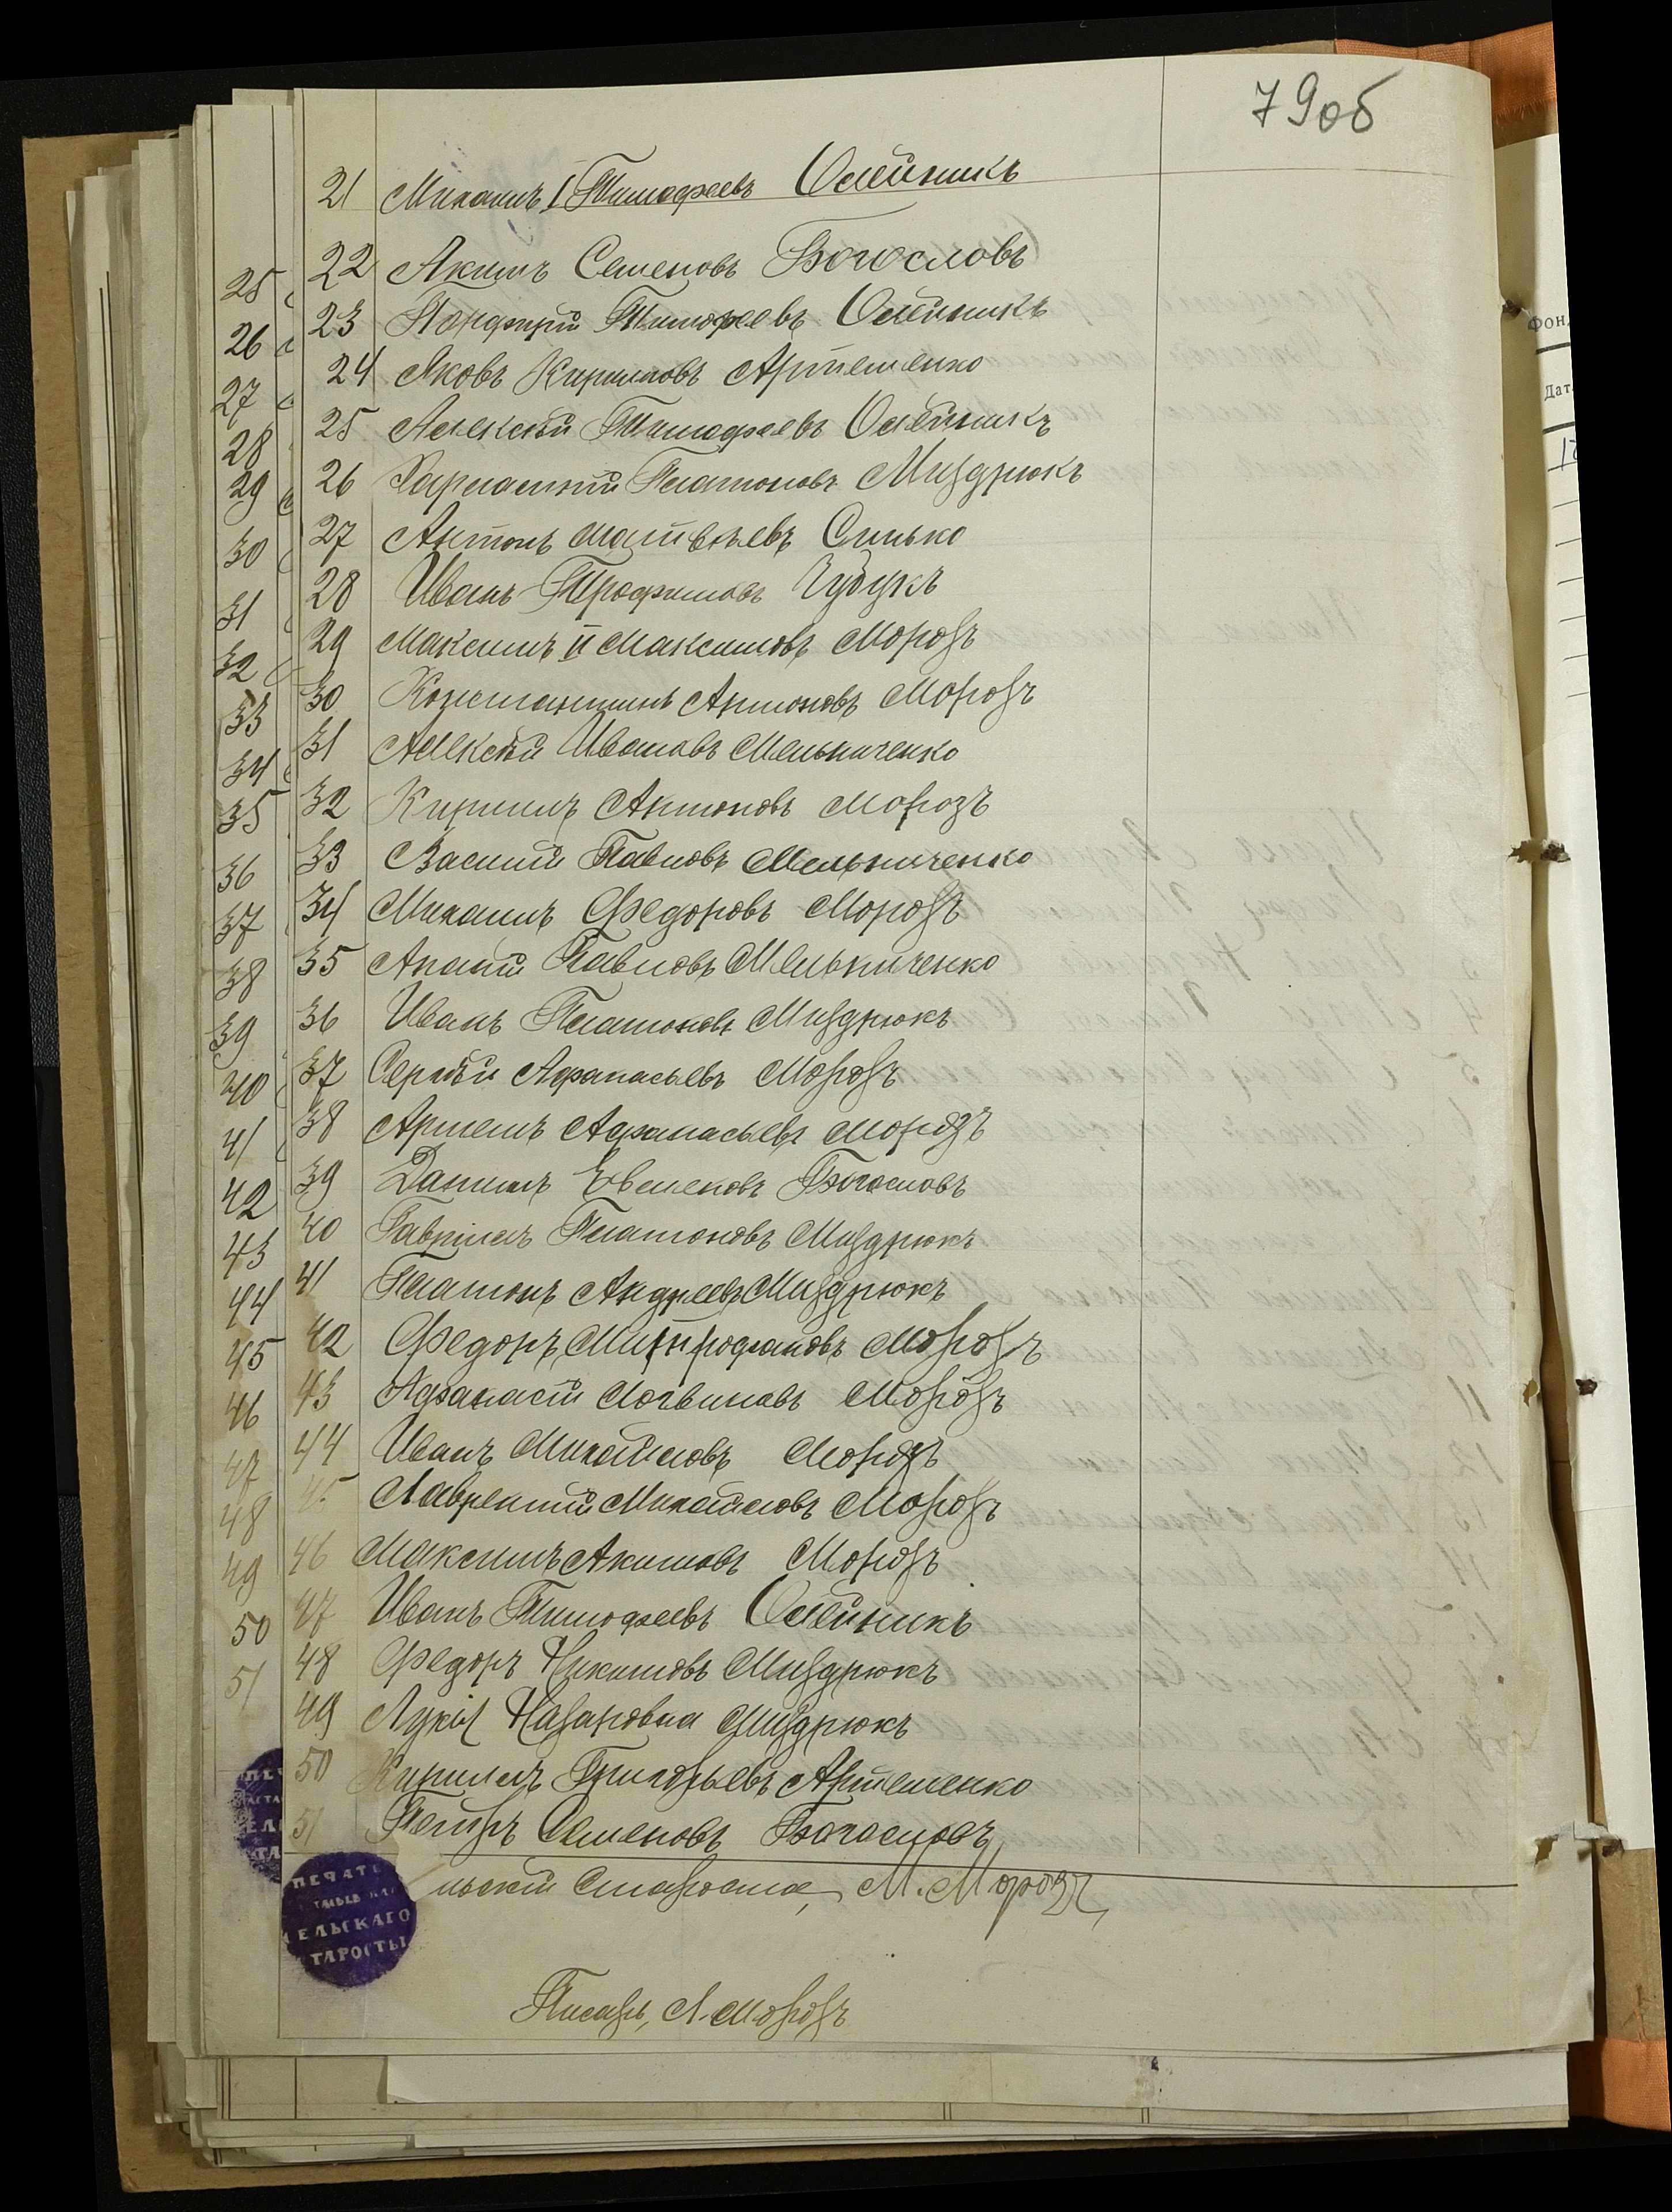 79об
21 Михаилъ I Тимофеевъ Олейникъ
22 Акимъ Семеновъ Богословъ
23 Панфирій Тимофеевъ Олейникъ
24 Яковъ Кириловъ Артеменко
25 Алексѣй Тимофеевъ Олейникъ
26 Харлампій Платоновъ Миздрюкъ
27 Антонъ Матвѣевъ Синько
28 Иванъ Трофимовъ Чубукъ
29 Максимъ II Максимовъ Морозъ
30 Константинъ Антоновъ Морозъ
31 Алексѣй Ивановъ Мельниченко
32 Кирилъ Антоновъ Морозъ
33 Василій Павловъ Мельниченко
34 Михаилъ Федоровъ Морозъ
35 Ананій Павловъ Мельниченко
36 Иванъ Платоновъ Миздрюкъ
37 Сергѣй Афанасьевъ Морозъ
38 Артемъ Афанасьевъ Морозъ
39 Данилъ Евменовъ Богословъ
40 Гавріилъ Платоновъ Миздрюкъ
41 Платонъ Андреевъ Миздрюкъ
42 Федоръ Митрофановъ Морозъ
43 Афанасій Логвиновъ Морозъ
44 Иванъ Михайловъ Морозъ
45 Лаврентій Михайловъ Морозъ
46 Максимъ Акимовъ Морозъ
47 Иванъ Тимофеевъ Олейникъ
48 Федоръ Никитовъ Миздрюкъ
49 Лукія Назаровна Миздрюкъ
50 Кирилъ Григорьевъ Артеменко
51 Петръ Семеновъ Богословъ
льскій Староста, М. Морозъ
ПЕЧАТЬ
ЕЛЬСКАГО
ТАРОСТЫ
Писарь, Л. Морозъ
25
26
27
28
29
30
31
32
33
34
35
36
37
38
39
40
41
42
43
44
45
46
47
48
49
50
51
Фон
Дат